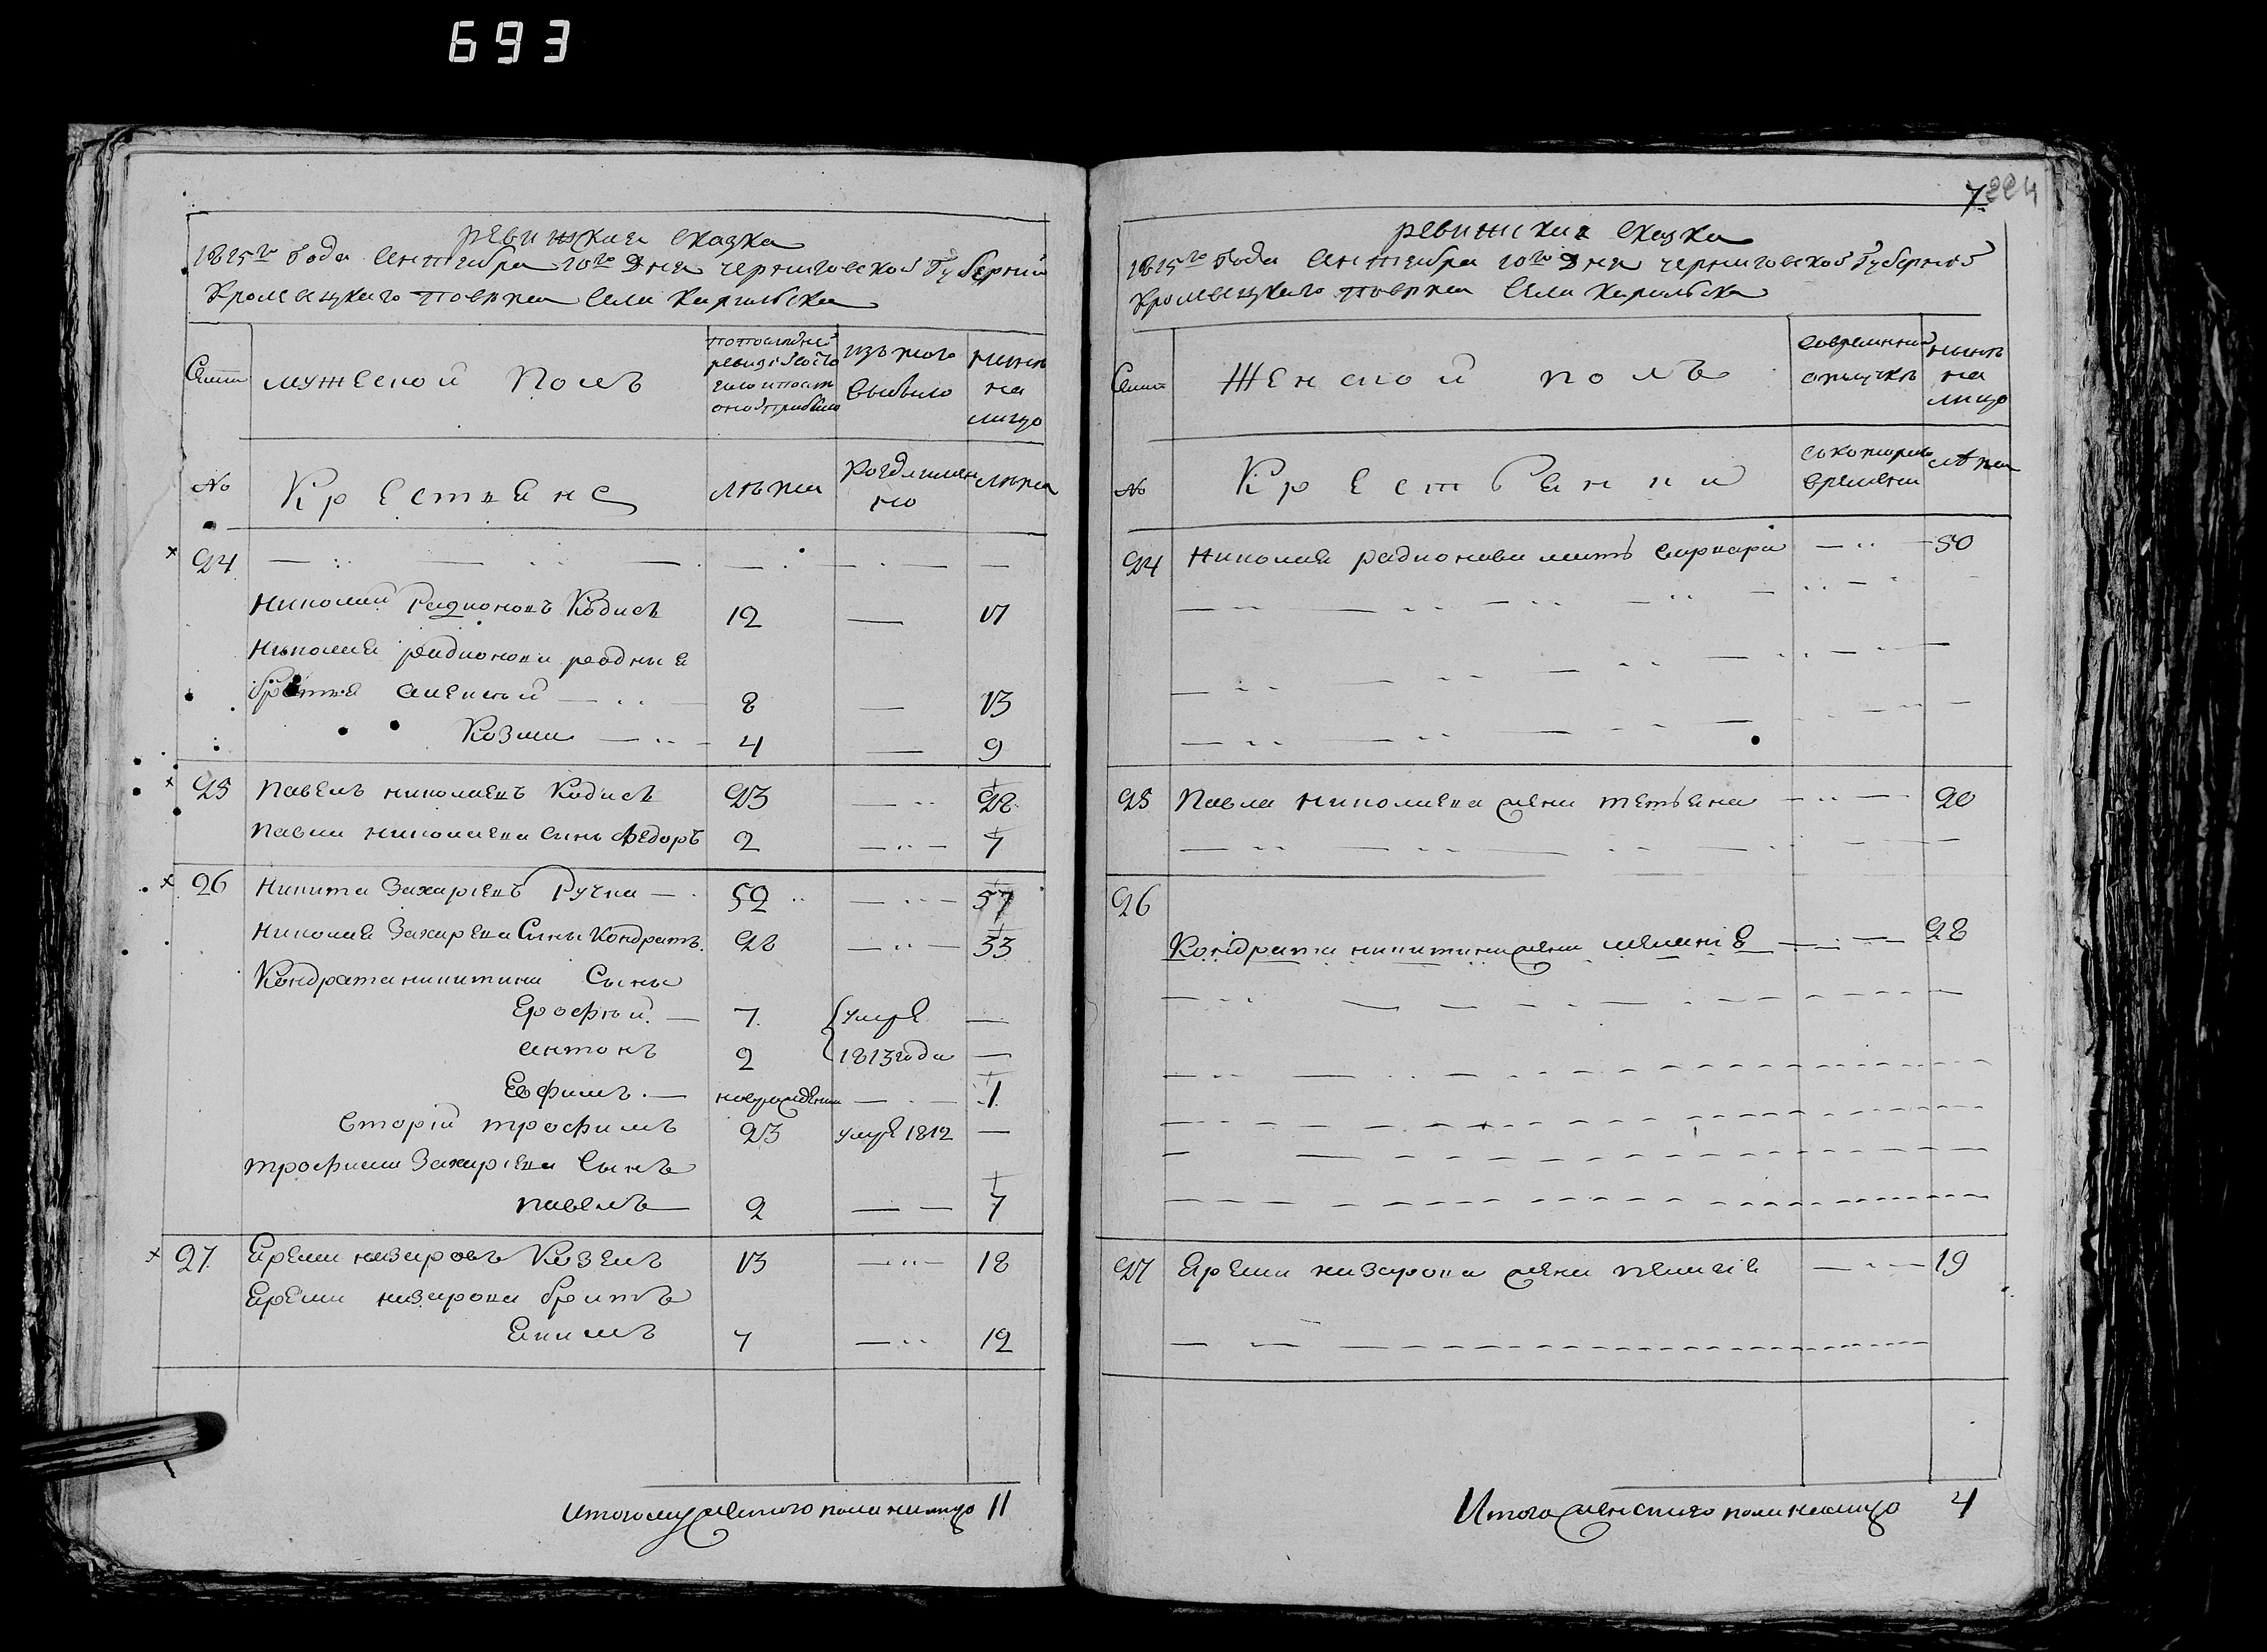 693
ревижская сказка
1815го Года Сентября 10го Дня черниговской Губерний
Кролевецкаго повета Села Карильска
Семи
мужеской Полъ
попоследней
ревизіи состо
яло и после
оной прибыло
изъ того
выбыло
ныне
на
лицо
№
Крестяне
лета
когда имян
но
лета
24
Николай Радионовъ Кодисъ 12 — 17
Николая радионова родные
братья алексей — 8 — 13
Козма — 4 — 9
25 Павелъ николаевъ Кодисъ 23 — 28
павла николаева сынъ Федоръ 2 — 7
26 Никита Захаріевъ Ручка — 52 — 57
Николая Захарева Сынъ Кондратъ 28 — 33
Кондрата никитина Сыны
Ерофей — 7 умре —
антонъ 2 1813 года —
Евфимъ — новорожденны — 1
вторій трофимъ 23 умре 1812 —
трофима Захаріева Сынъ
павелъ 2 — 7
27 Ярема назаровъ Козелъ 13 — 18
Яремы назарова братъ
Якимъ 7 — 12
Итого мужеского пола налицо 11
7 224
ревижская сказка
1815го Года Сентября 10го Дня черниговской Губерной
Кролевецкаго повета Села Карильска
Семи
Женской полъ
вовременной
отлучке
ныне
на
лицо
№
Крестьянки
скоторого
времени
лета
24 Николая радионова мать варвара — 50
25 Павла николаева жена татьяна — 20
26
Кондрата никитина жена меланія — 28
27 Яремы назарова жена пелагія — 19
Итого женского пола налицо 4